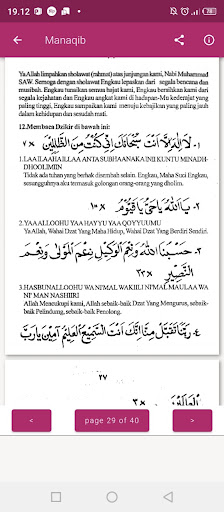 19.12
Manaqib
Ya Allah limpahkan sholawat (rahmat) atas junjungan kami, Nabi Muhammad
SAW. Semoga dengan sholawat Engkau lepaskan dari segala bencana dan
musibah. Engkau tunaikan semua hajat kami, Engkau bersihkan kami dari
segala kejahatan dan Engkau angkat kami di hadapan-Mu kederajat yang
paling tinggi. Engkau sampaikan kami menuju kebajikan yang paling jauh
dalam kehidupan dan sesudah mati.
12.Membaca Dzikir di bawah ini:
١- لَا اِلٰهَ اِلَّا اَنْتَ سُبْحَانَكَ اِنِّى كُنْتُ مِنَ الظّٰلِمِيْنَ × ٧
1. LAA ILAAHA ILLAA ANTA SUBHAANAKA INII KUNTU MINADH-
DHOOLIMIN
Tidak ada tuhan yang berhak disembah selain. Engkau, Maha Suci Engkau,
sesungguhnya aku termasuk golongan orang-orang yang dholim.
٢- يَا اَللّٰهُ يَا حَيُّ يَا قَيُّوْمُ × ١٠
2. YAA ALLOOHU YAA HAYYU YAA QOYYUUMU
Ya Allah, Wahai Dzat Yang Maha Hidup, Wahai Dzat Yang Berdiri Sendiri.
٣- حَسْبُنَا اللّٰهُ وَنِعْمَ الْوَكِيْلُ نِعْمَ الْمَوْلٰى وَنِعْمَ
النَّصِيْرُ × ٣٣
3. HASBUNALLOOHU WA NI'MAL WAKIILI NI'MAL MAULAA WA
NI' MAN NASHIIRI
Allah Mencukupi kami, Allah sebaik-baik Dzat Yang Mengurus, sebaik-
baik Pelindung, sebaik-baik Penolong.
٤- رَبَّنَا تَقَبَّلْ مِنَّا اِنَّكَ اَنْتَ السَّمِيْعُ الْعَلِيْمُ اٰمِيْنَ يَا رَبَّ
٢٧
الْعَالَمِيْنَ × ٣
<
page 29 of 40
>